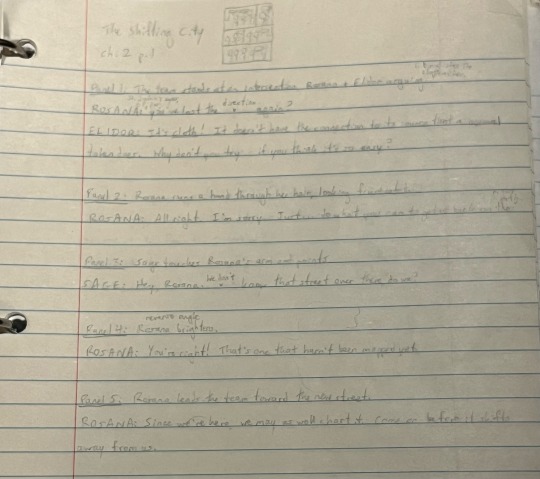 The Shifting City
ch. 2 p. 1
Panel 1: The team stands at an intersection. Rosana + Elidor arguing
direction
ROSANA: You've lost the again?
ELIDOR: It's cloth! It doesn't have the connection to its source that a normal
token does. Why don't you try if you think it's so easy?
Panel 2: Rosana runs a hand through her hair, looking
ROSANA: All right. I'm sorry. Just do what you can to get us back on the
Panel 3: Sage touches Rosana's arm and points
we don't
SAGE: Hey, Rosana. know that street over there do we?
reverse angle
Panel 4: Rosana brightens.
ROSANA: You're right! That's one that hasn't been mapped yet.
Panel 5: Rosana leads the team toward the new street.
ROSANA: Since we're here, we may as well chart it. Come on before it shifts
away from us.